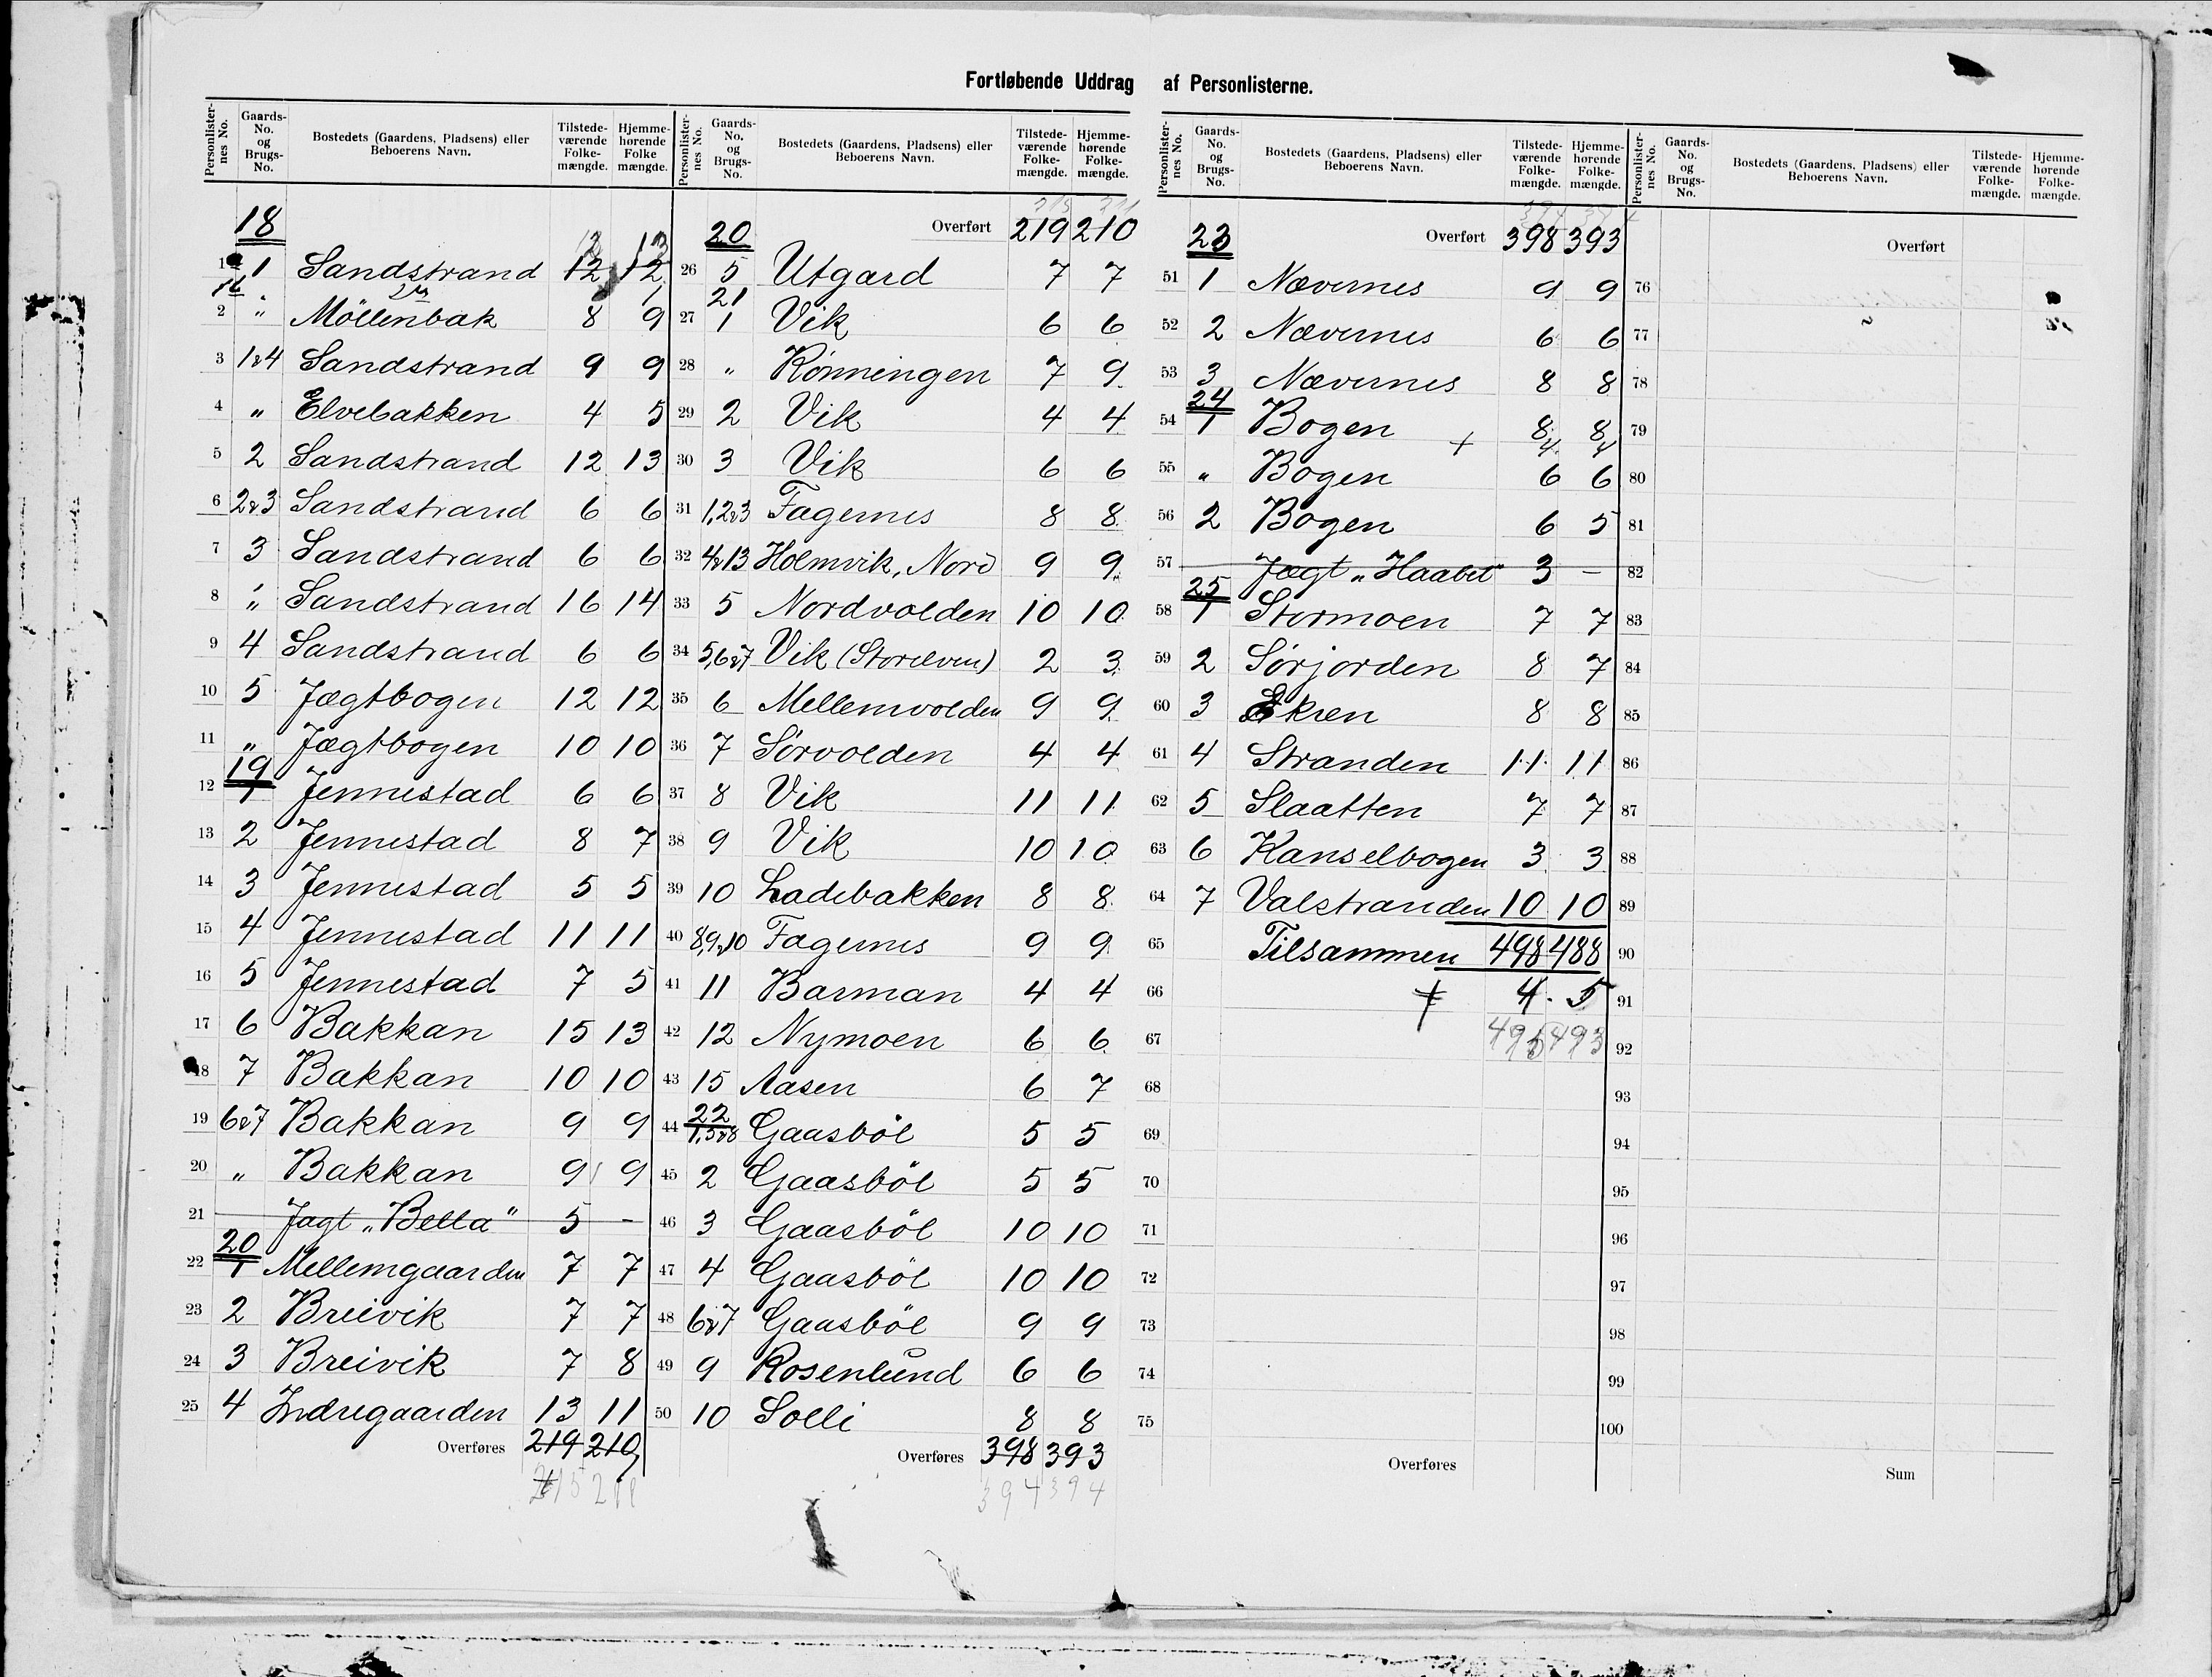 Fortløbende Uddrag af Personlisterne.
Personlisternes No. Gaards-No. og Brugs-No. Bostedets (Gaardens, Pladsens) eller Beboerens Navn. Tilstedeværende Folkemængde. Hjemmehørende Folkemængde.
18
1 1 Sandstrand 12 12
2 " Möllenbak 8 9
3 1&4 Sandstrand 9 9
4 " Elvebakken 4 5
5 2 Sandstrand 12 13
6 2&3 Sandstrand 6 6
7 3 Sandstrand 6 6
8 " Sandstrand 16 14
9 4 Sandstrand 6 6
10 5 Jægtbogen 12 12
11 " Jægtbogen 10 10
19
12 1 Jennestad 6 6
13 2 Jennestad 8 7
14 3 Jennestad 5 5
15 4 Jennestad 11 11
16 5 Jennestad 7 5
17 6 Bakkan 15 13
18 7 Bakkan 10 10
19 6&7 Bakkan 9 9
20 " Bakkan 9 9
21 Jagt „Bella" 5 -
20
22 1 Mellemgaarden 7 7
23 2 Breivik 7 7
24 3 Breivik 7 8
25 4 Indregaarden 13 11
Overføres 219 210
215 211
Personlisternes No. Gaards-No. og Brugs-No. Bostedets (Gaardens, Pladsens) eller Beboerens Navn. Tilstedeværende Folkemængde. Hjemmehørende Folkemængde.
20 Overført 219 210
26 5 Utgard 7 7
21
27 1 Vik 6 6
28 " Rönningen 7 9
29 2 Vik 4 4
30 3 Vik 6 6
31 1,2&3 Fagernes 8 8
32 4&13 Holmvik, Nord 9 9
33 5 Nordvolden 10 10
34 5,6&7 Vik (Storelven) 2 3
35 6 Mellemvolden 9 9
36 7 Sörvolden 4 4
37 8 Vik 11 11
38 9 Vik 10 10
39 10 Ladebakken 8 8
40 8,9&10 Fagernes 9 9
41 11 Barman 4 4
42 12 Nymoen 6 6
43 15 Aasen 6 7
22
44 1,5&8 Gaasböl 5 5
45 2 Gaasböl 5 5
46 3 Gaasböl 10 10
47 4 Gaasböl 10 10
48 6&7 Gaasböl 9 9
49 9 Rosenlund 6 6
50 10 Solli 8 8
Overføres 398 393
394 394
Personlisternes No. Gaards-No. og Brugs-No. Bostedets (Gaardens, Pladsens) eller Beboerens Navn. Tilstedeværende Folkemængde. Hjemmehørende Folkemængde.
23 Overført 398 393
51 1 Nævernes 9 9
52 2 Nævernes 6 6
53 3 Nævernes 8 8
24
54 1 Bogen 8 8
+ 4 4
55 " Bogen 6 6
56 2 Bogen 6 5
57 Jægt „Haabet" 3 -
25
58 1 Stormoen 7 7
59 2 Sörjorden 8 7
60 3 Ekren 8 8
61 4 Stranden 11 11
62 5 Slaatten 7 7
63 6 Kanselbogen 3 3
64 7 Valstranden 10 10
65 Tilsammen 498 488
66 + 4 5
67 495 493
68
69
70
71
72
73
74
75
Overføres
Personlisternes No. Gaards-No. og Brugs-No. Bostedets (Gaardens, Pladsens) eller Beboerens Navn. Tilstedeværende Folkemængde. Hjemmehørende Folkemængde.
Overført
76
77
78
79
80
81
82
83
84
85
86
87
88
89
90
91
92
93
94
95
96
97
98
99
100
Sum